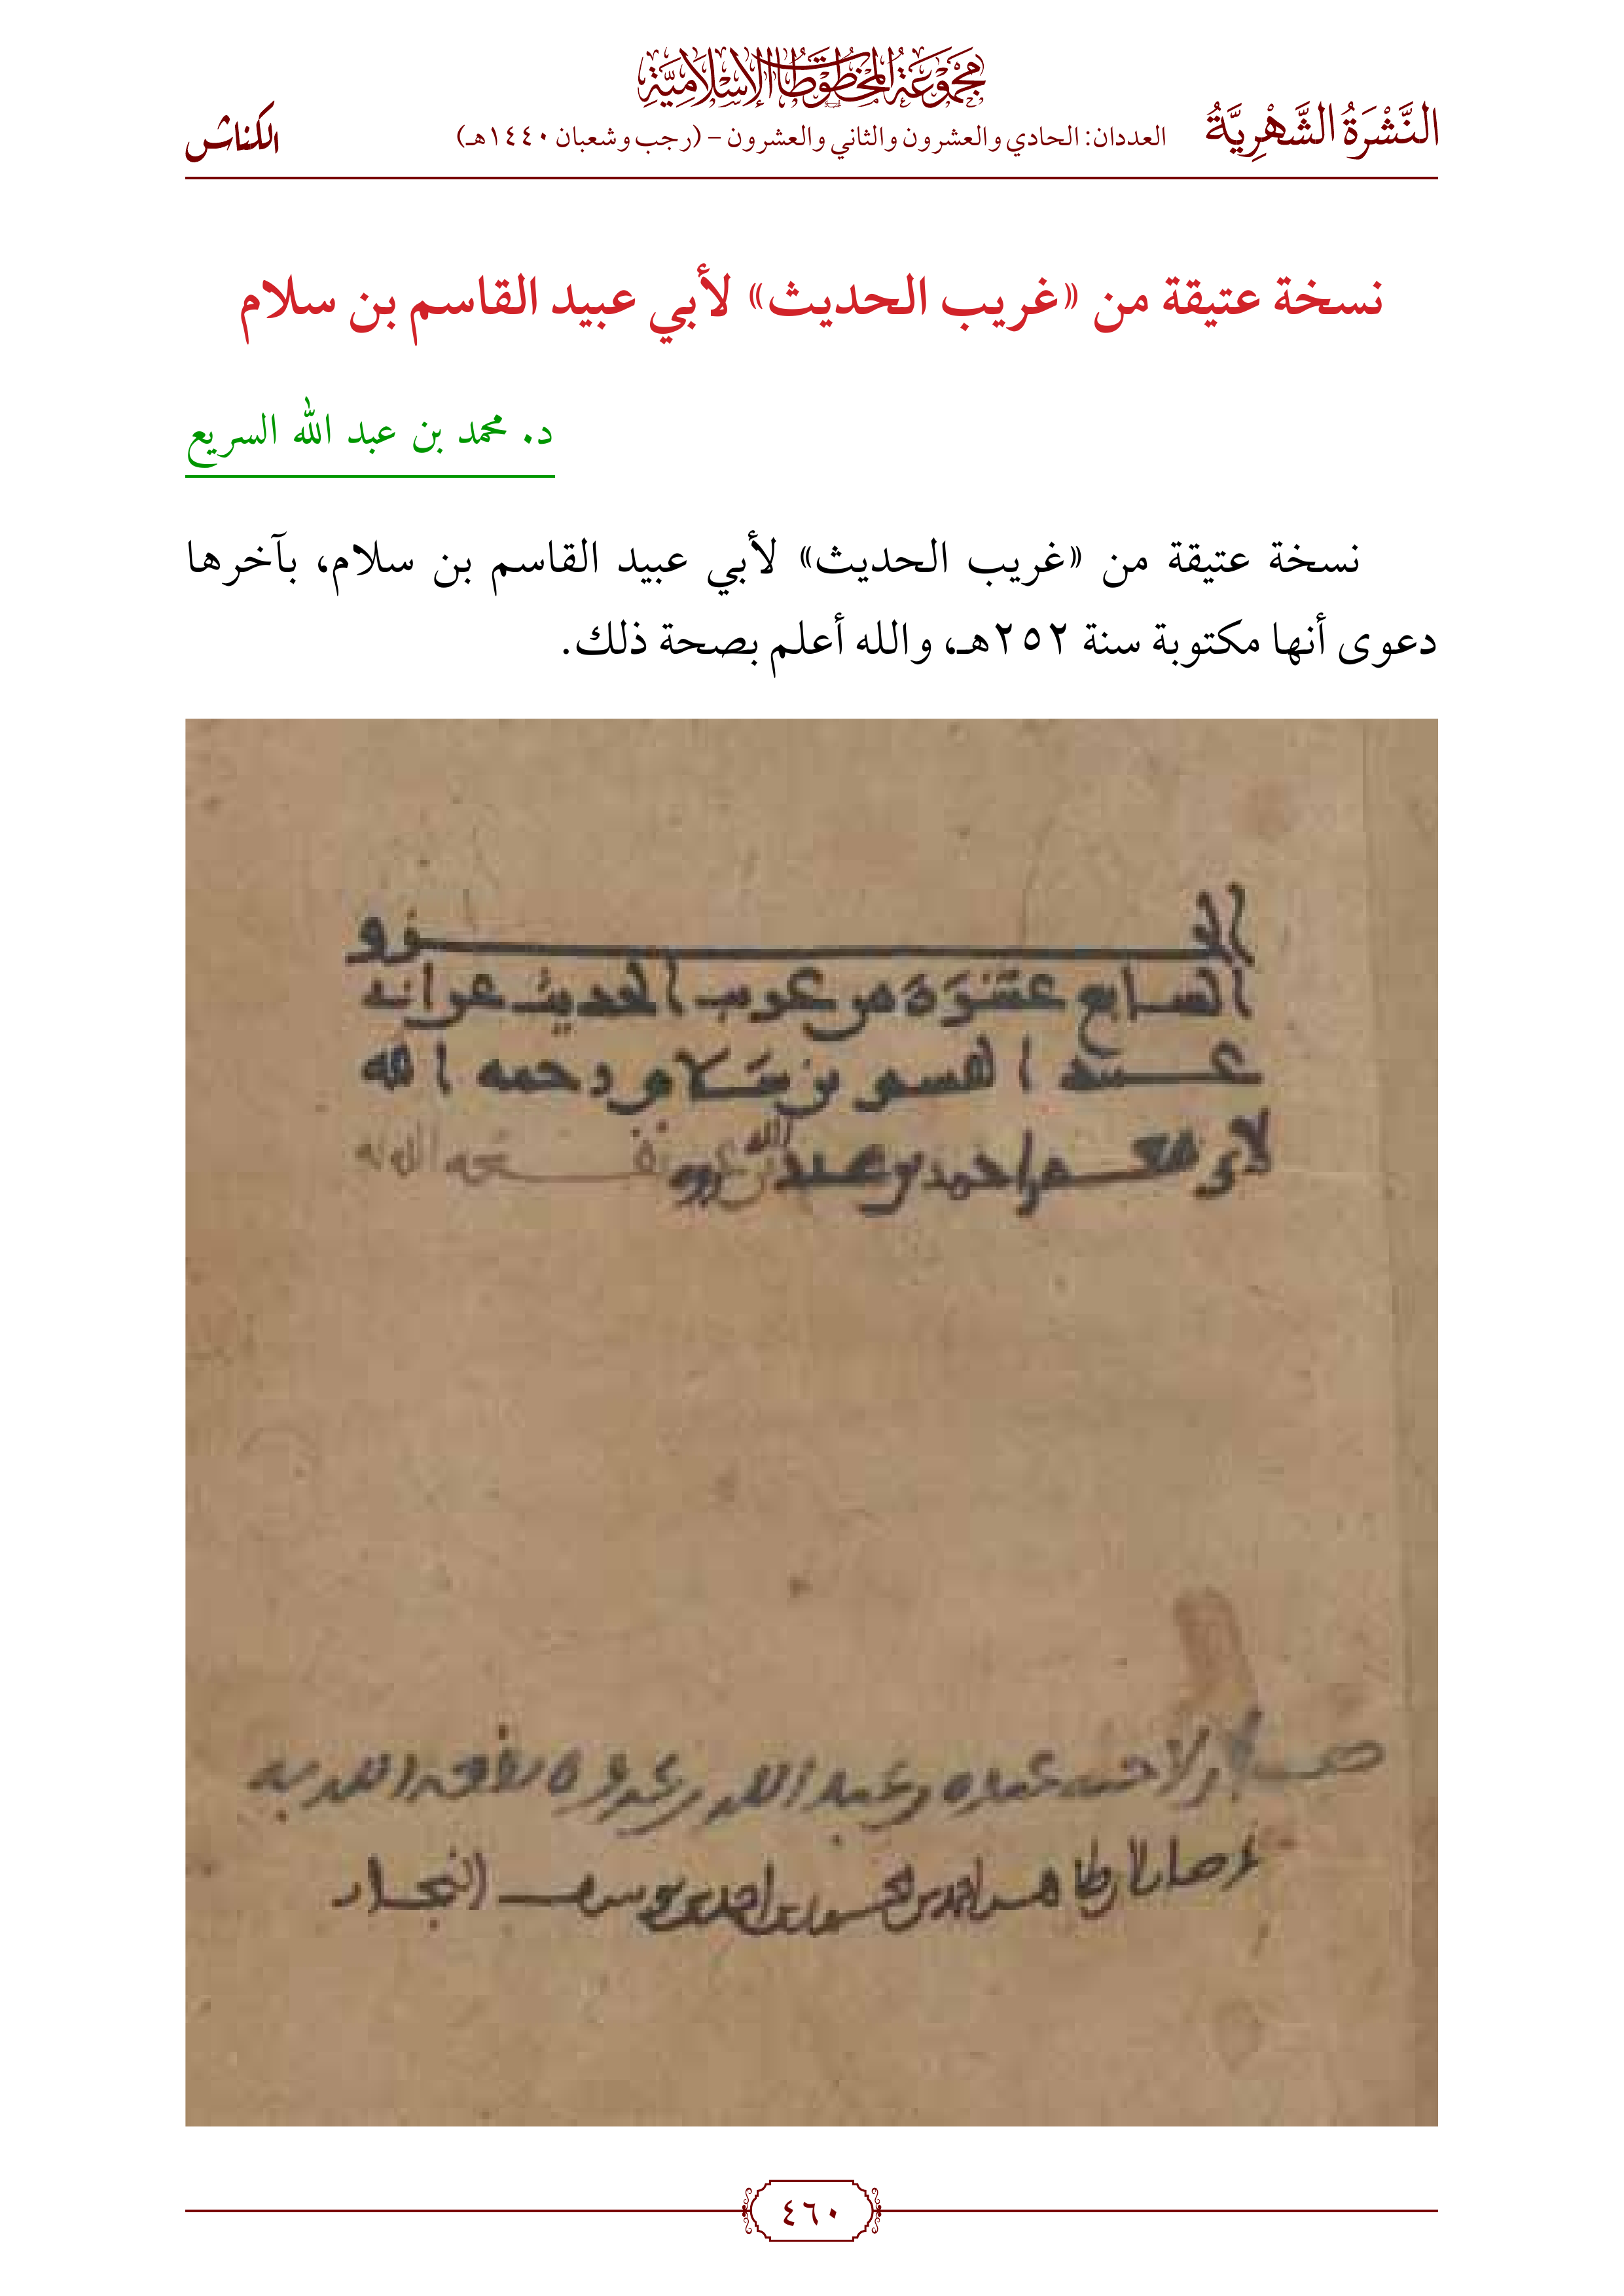 مَجْمُوعَةُ المَخْطُوطَاتِ الإِسْلَامِيَّةِ
النَّشْرَةُ الشَّهْرِيَّةُ
العددان: الحادي والعشرون والثاني والعشرون – (رجب وشعبان ١٤٤٠هـ)
الكناش
نسخة عتيقة من «غريب الحديث» لأبي عبيد القاسم بن سلام
د. محمد بن عبد الله السريع
نسخة عتيقة من «غريب الحديث» لأبي عبيد القاسم بن سلام، بآخرها
دعوى أنها مكتوبة سنة ٢٥٢هـ، والله أعلم بصحة ذلك.
الجزو
السابع عشرة من غريب الحديث عن ابي
عبيد القسم بن سلام رحمه الله
احمد بن عبيد الله
عبد الله
احمد بن يوسف النجار
٤٦٠